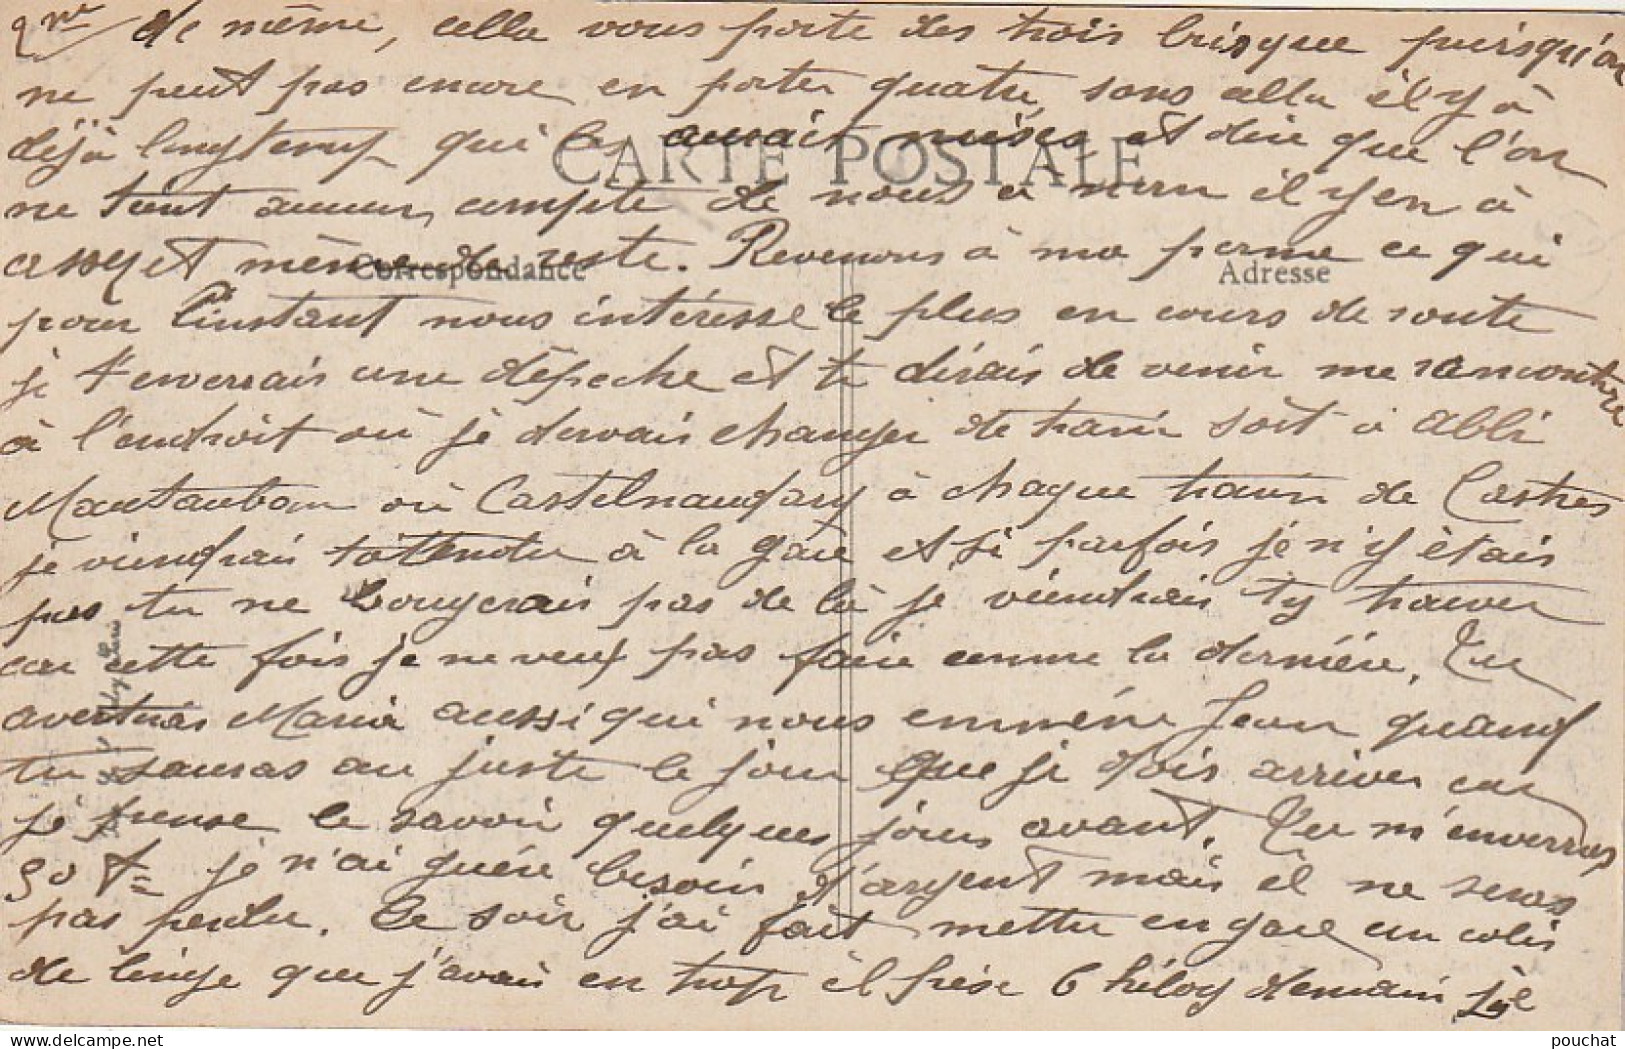 2me de même, cella vous porte des trois brisque puisqu'on
ne peut pas encore en porter quatre, sans cella il y à
déjà longtemp qui les aurait mises et dire que l'on
CARTE POSTALE
ne tient aucun compte de nous à mon il y en à
assez et même de reste. Revenons à ma perme ce qui
Correspondance
Adresse
pour l'instant nous intéresse le plus en cours de route
je t'enverrais une dépeche et te dirais de venir me rencontre
à l'endroit où je dervais changer de train soit à Albi
Mautauban où Castelnaudary à chaque train de Castres
je viendrais t'attendre à la gare et si parfois je n'y étais
pas tu ne bougerais pas de là je viendrais t'y trouver
car cette fois je ne veux pas faire comme la dernière. Tu
avertiras Maria aussi qui nous emméne Jean quand
tu sauras au juste le jour que je dois arriver car
je pense le savoir quelques jours avant. Tu m'enverras
50 f= je n'ai guére besoin d'argent mais il ne seras
pas perdu. Ce soir j'ai fait mettre en gare un colis
de linge que j'avais en trop il pése 6 kilog demain je